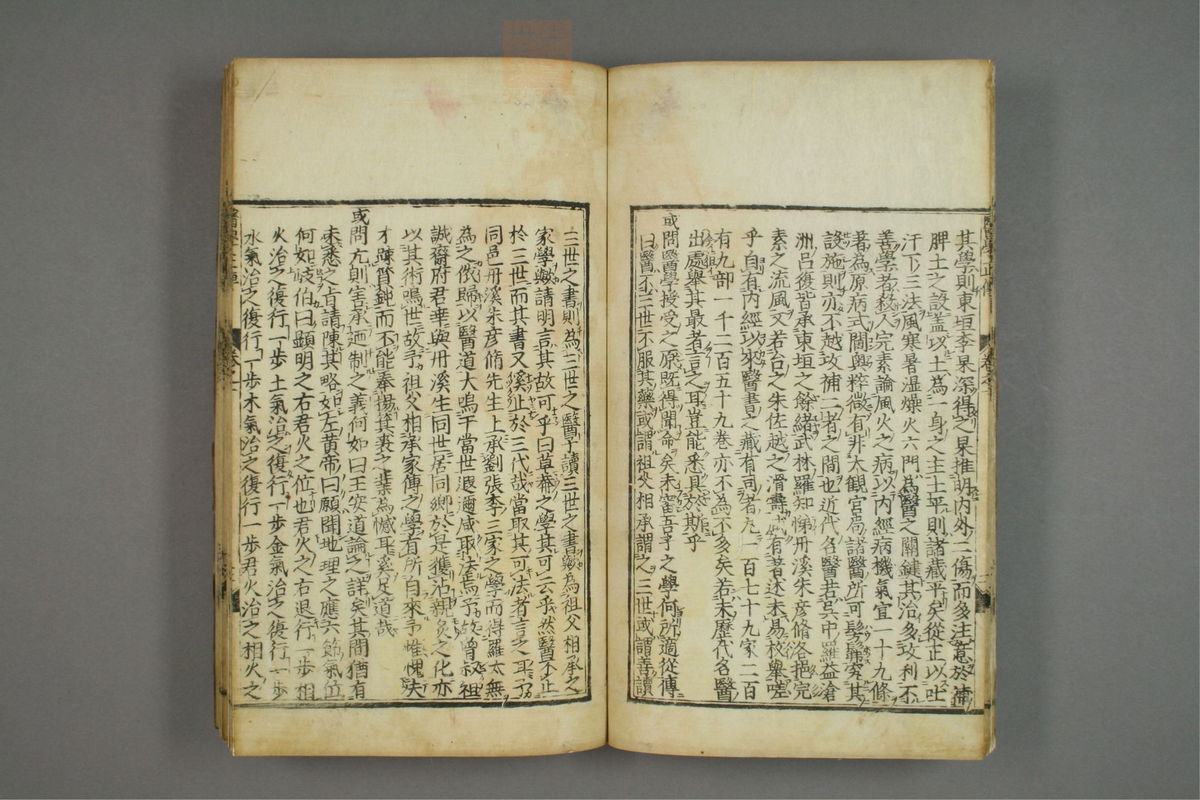 其學則東垣李杲深得之杲推明內外二傷而多注意於補
脾土之設蓋以土爲一身之主土平則諸藏平矣從正以吐
汗下三法風寒暑湿燥火六門爲醫之關鍵其治多攻利不
善學者殺人完素論風火之病以內經病機氣宜一十九條
著為原病式闊奧粹微有非大観官局諸醫所可髣髴究其
設施則亦不越攻補二者之間也近代名醫若吳中羅益滄
洲呂復皆承東垣之餘緒武林羅知悌丹溪朱彦脩各挹完
素之流風又若台之朱佐越之滑壽咸有著述未易枚舉嗟
乎自有內經以來醫書之藏有司者凡一百七十九家二百
有九部一千二百五十九卷亦不為不多矣若夫歷代名醫
出處舉其最者言之耳豈能悉具於斯乎
或問醫學授受之原既得聞命矣未審吾子之學何所適從傳
曰醫不三世不服其藥或謂祖父相承謂之三世或謂善讀
三世之書則為三世之醫子讀三世之書歟為祖父相承之
家學歟請明言其故可乎曰草菴之學其可云乎然醫不止
於三世而其書又奚止於三代哉當取其可法者言之耳予
同邑丹溪朱彦脩先生上承劉張李三家之學而得羅太無
為之依歸以醫道大鳴于當世遐邇咸取法焉予故曾叔祖
誠齋府君幸與丹溪生同世居同鄉於是獲沾親炙之化亦
以其術鳴世故予祖父相承家傳之學有所自來予惟愧夫
才疎質鈍而不能奉揚其裘之業為憾耳奚足道哉
或問亢則害承迺制之義何如曰王安道論之詳矣其間猶有
未悉之旨請陳其略如左黄帝曰願聞地理之應六節氣位
何如岐伯曰顯明之右君火之位也君火之右退行一歩相
火治之復行一歩土氣治之復行一歩金氣治之復行一歩
水氣治之復行一歩木氣治之復行一歩君火治之相火之